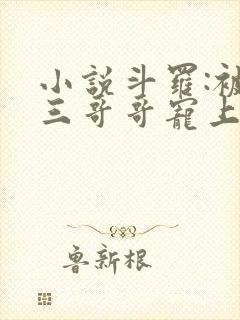 小説斗羅:被
三哥哥寵上
魯新根